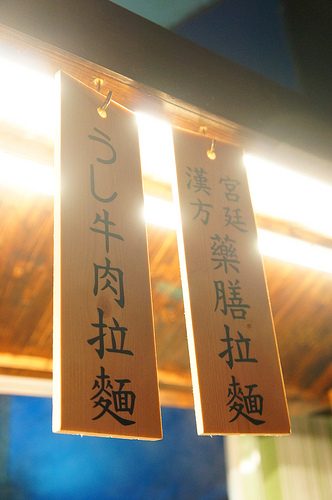 うし牛肉拉麵
宮廷
漢方
藥膳拉麵